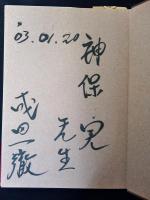 '03.01.20
神保
先生
成田徹